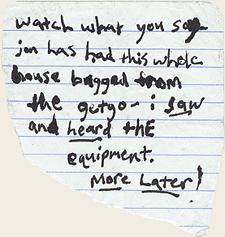 watch what you say -
jon has had this whole
house bugged from
the getgo - i saw
and heard thE
equipment.
More Later!